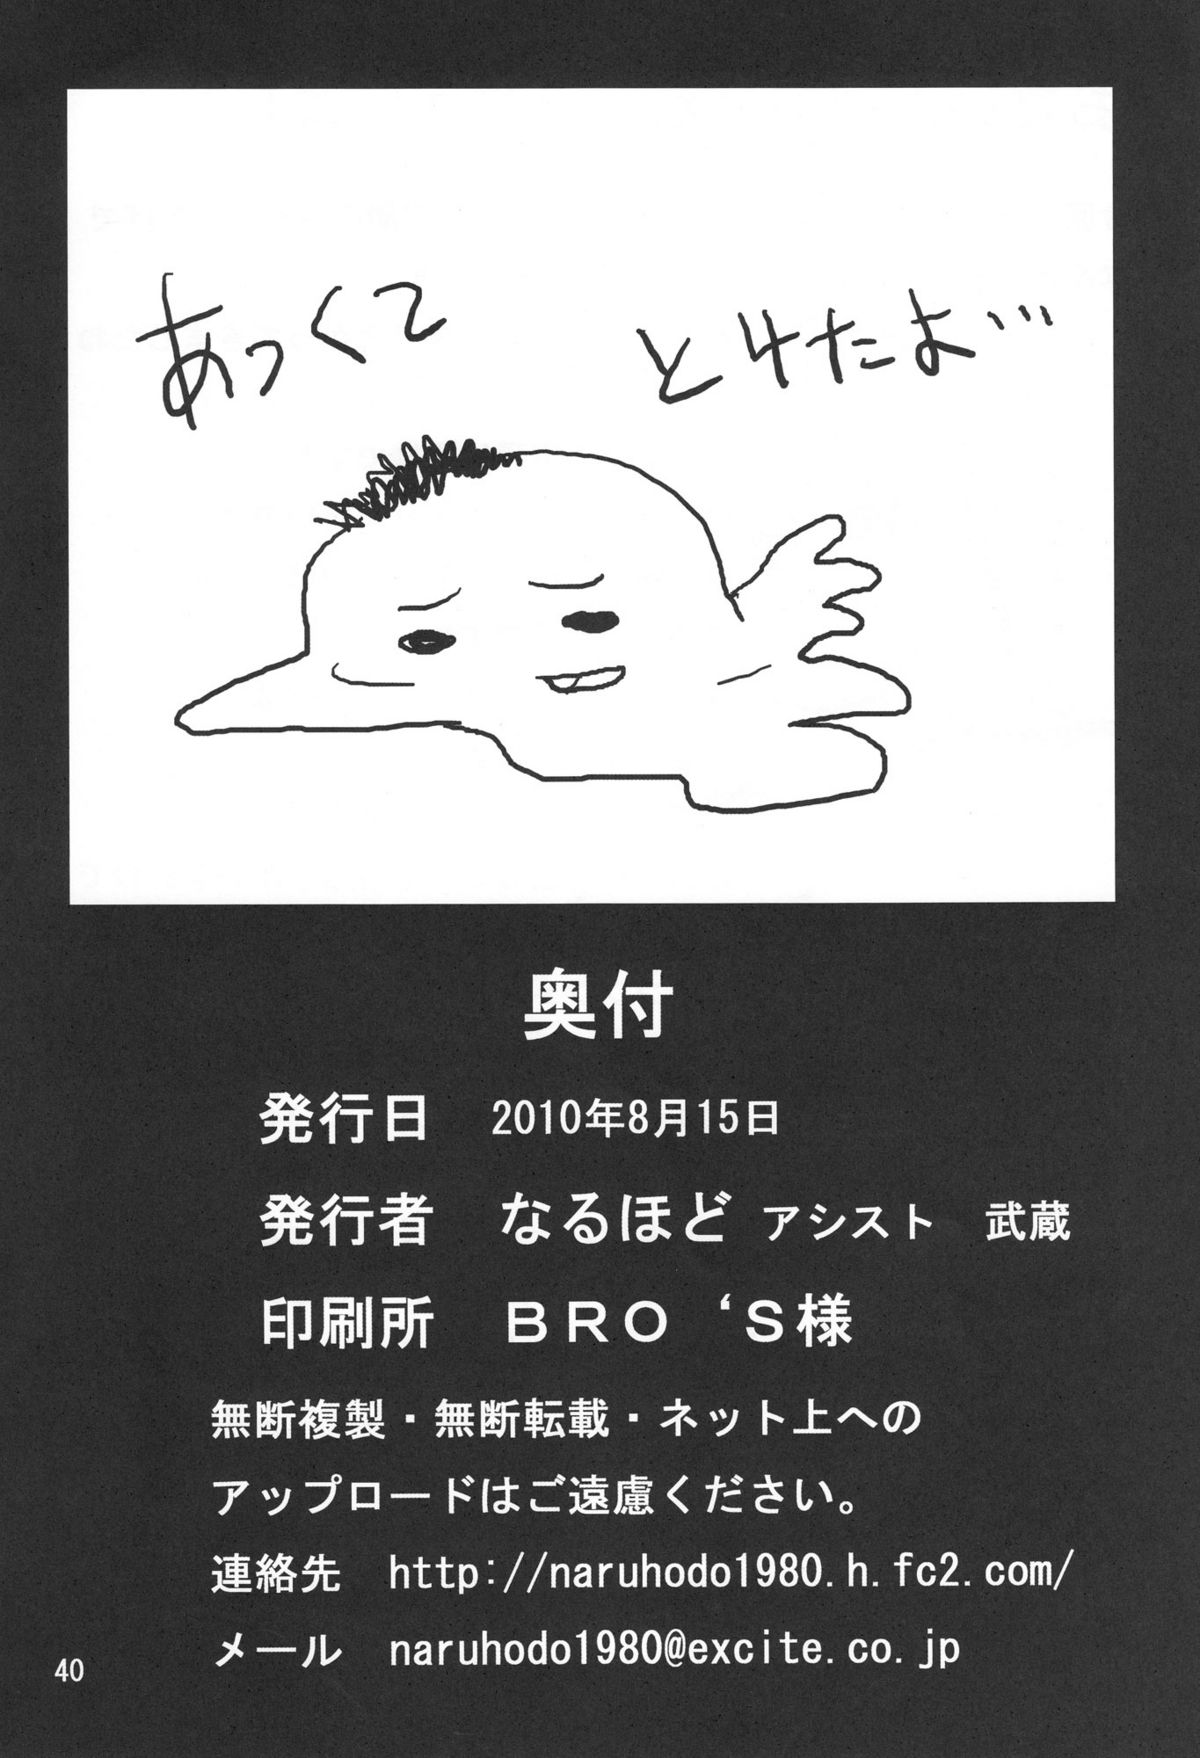 あつくて とけたよ…
奥付
発行日 2010年8月15日
発行者 なるほど アシスト 武蔵
印刷所 ＢＲＯ‘Ｓ様
無断複製・無断転載・ネット上への
アップロードはご遠慮ください。
連絡先 http://naruhodo1980.h.fc2.com/
メール naruhodo1980@excite.co.jp
40